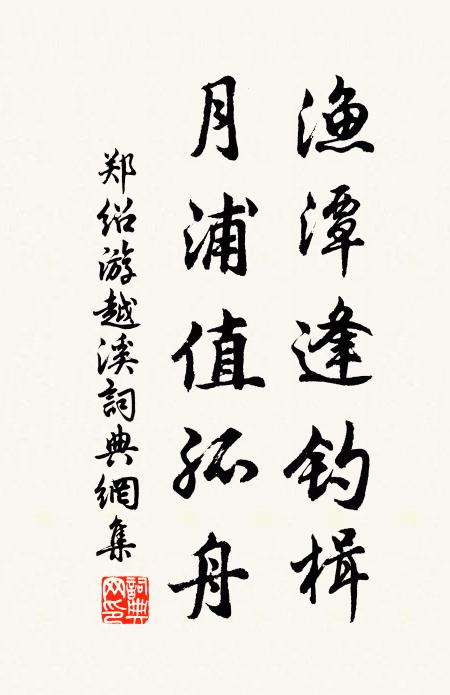 渔潭逢钓楫
月浦值孤舟
郑绍游越溪詞典網集
詞典网印